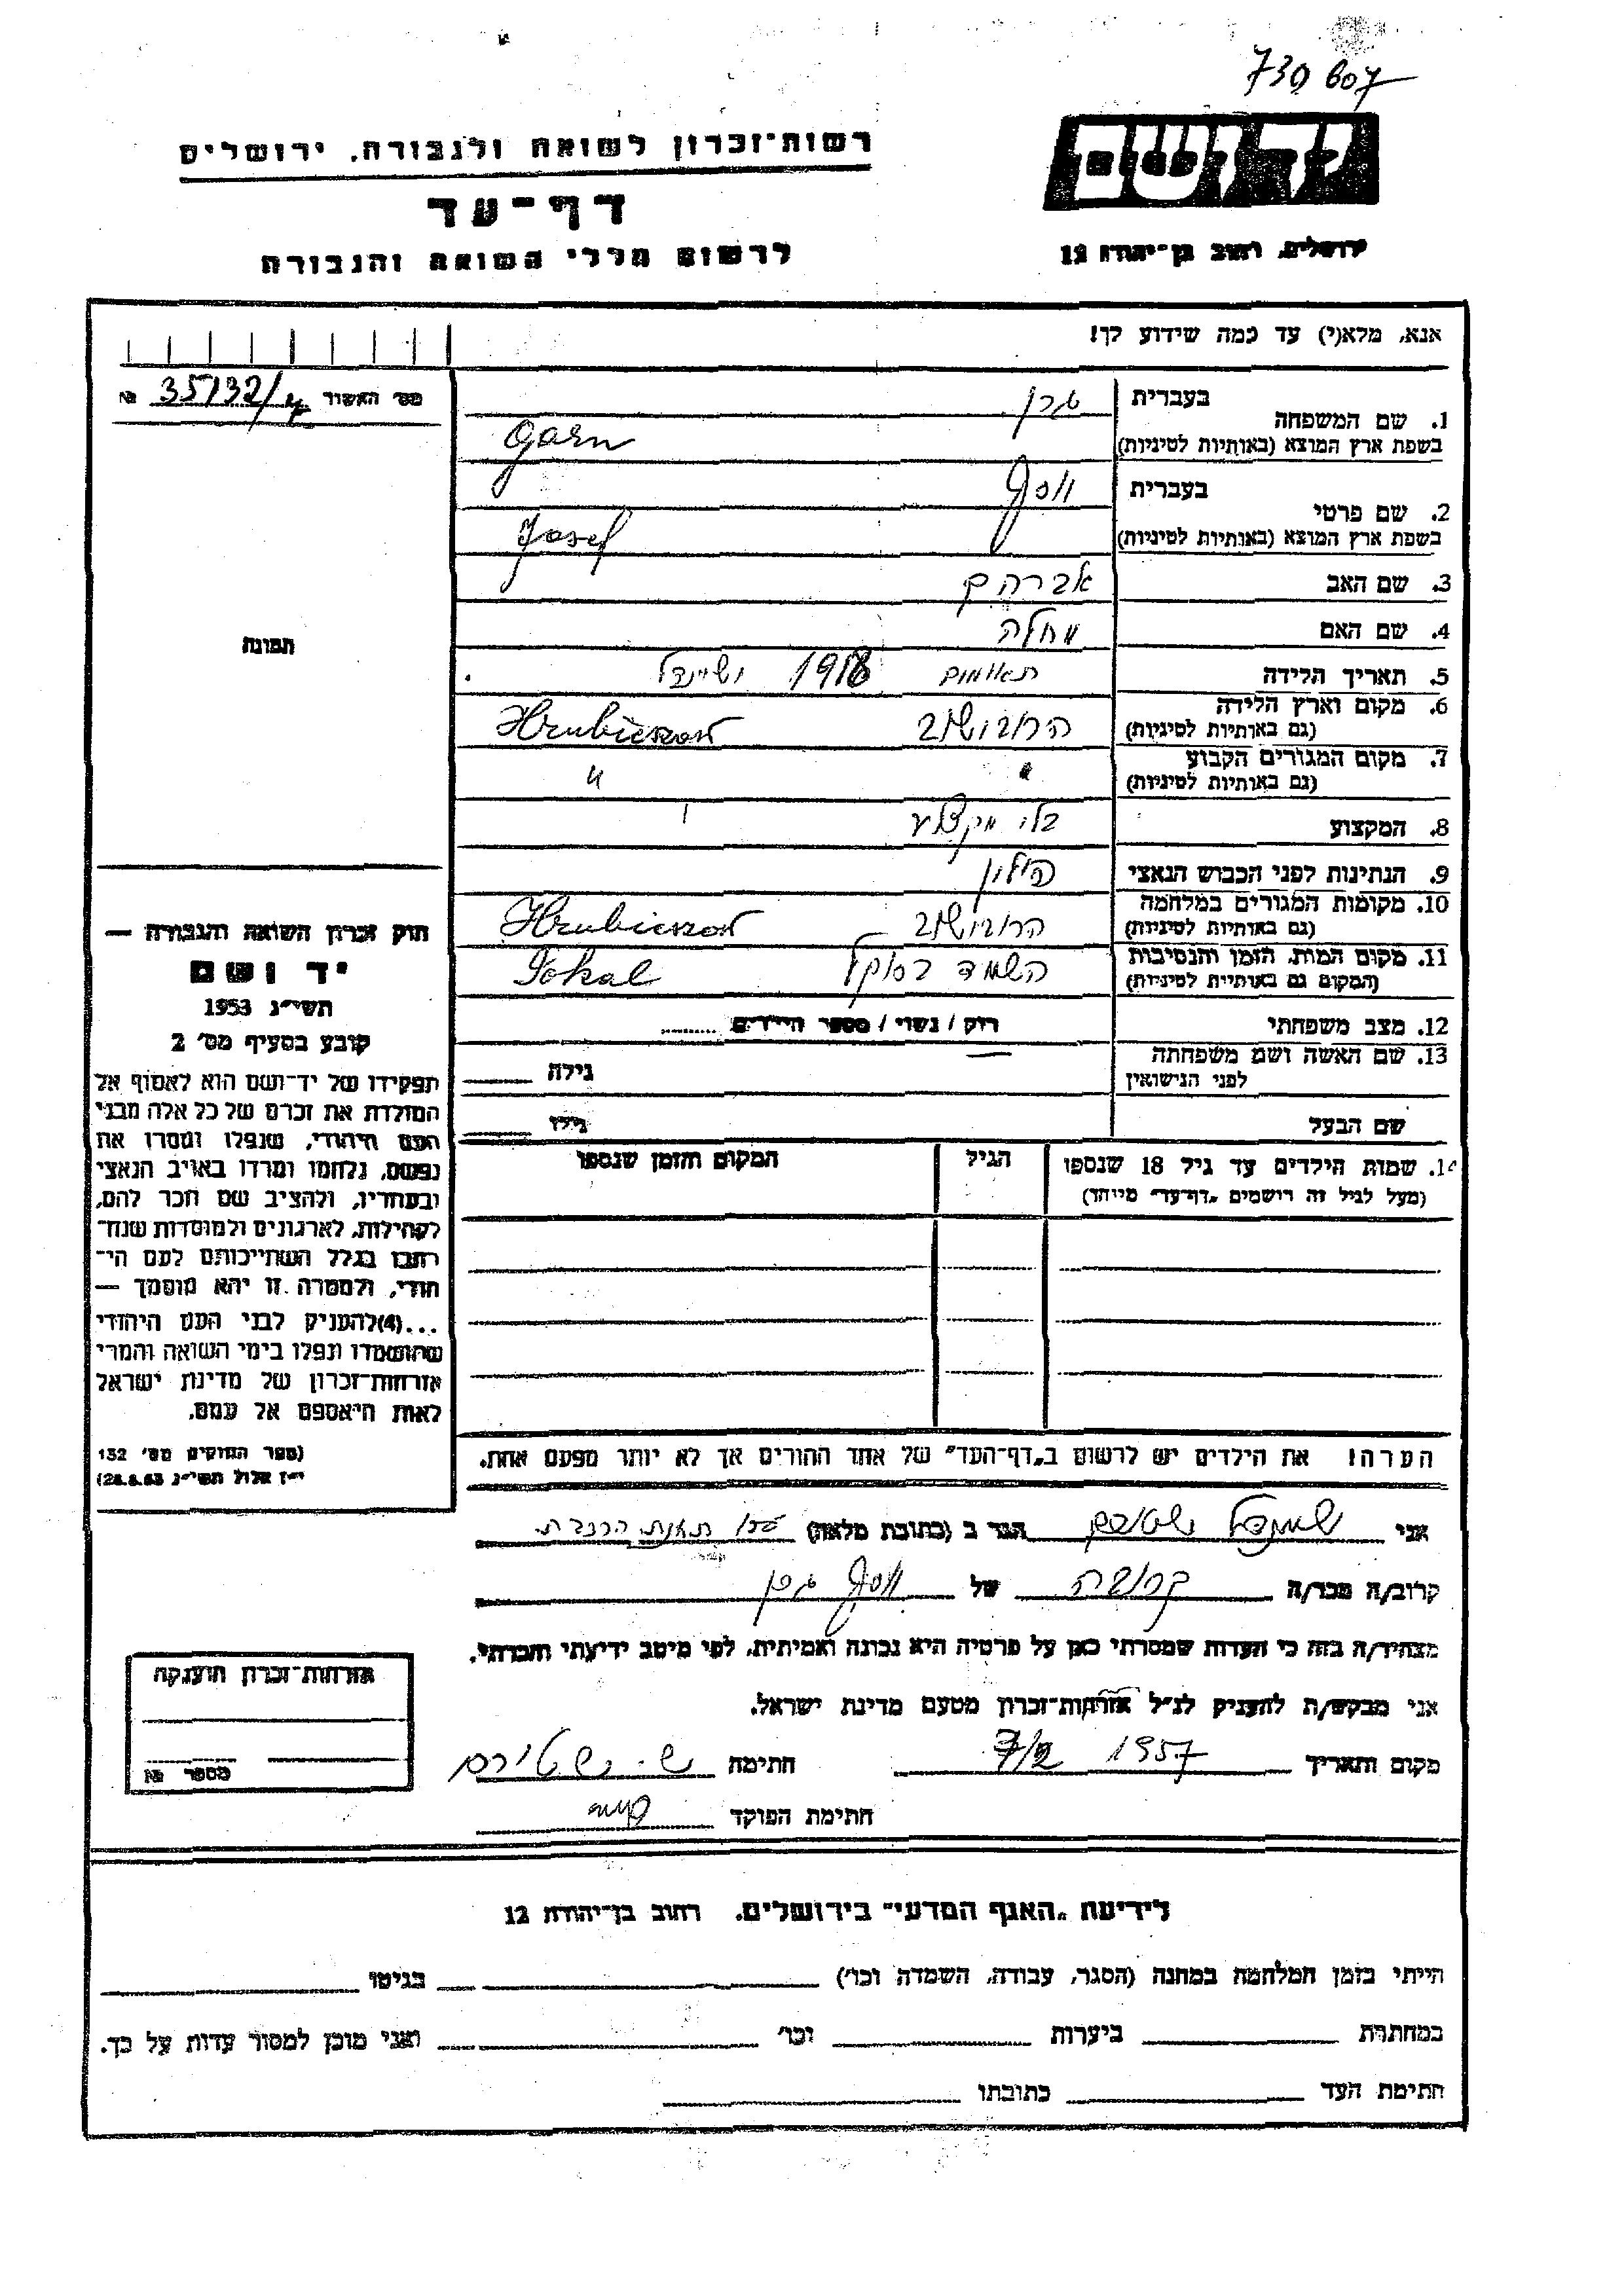 730607
יד ושם
ירושלים, רחוב בן־יהודה 12
רשות־זכרון לשואה ולגבורה, ירושלים
דף־עד
לרשום חללי השואה והגבורה
אנא, מלא(י) עד כמה שידוע לך!
מס׳ האשור 35132/ № 
1. שם המשפחה
בעברית גרן
בשפת ארץ המוצא (באותיות לטיניות) Garn
2. שם פרטי
בעברית יוסף
בשפת ארץ המוצא (באותיות לטיניות) Josef
3. שם האב אברהם
4. שם האם מחלה
5. תאריך הלידה תאומים 1918
6. מקום וארץ הלידה
(גם באותיות לטיניות) הרובישוב Hrubieszow
7. מקום המגורים הקבוע
(גם באותיות לטיניות) " "
8. המקצוע בלי מקצוע
9. הנתינות לפני הכבוש הנאצי פולין
10. מקומות המגורים במלחמה
(גם באותיות לטיניות) הרובישוב Hrubieszow
11. מקום המות, הזמן והנסיבות
(המקום גם באותיות לטיניות) השמד בסוקל Sokal
12. מצב משפחתי רווק / נשוי / מספר הילדים
13. שם האשה ושם משפחתה
לפני הנישואין גילה
שם הבעל גילו
14. שמות הילדים עד גיל 18 שנספו הגיל המקום והזמן שנספו
(מעל לגיל זה רושמים „דף־עד״ מיוחד)
הערה! את הילדים יש לרשום ב„דף־העד״ של אחד ההורים אך לא יותר מפעם אחת.
תמונה
חוק זכרון השואה והגבורה —
יד ושם
תשי״ג 1953
קובע בסעיף מס׳ 2
תפקידו של יד־ושם הוא לאסוף אל
המולדת את זכרם של כל אלה מבני
העם היהודי, שנפלו ומסרו את
נפשם, נלחמו ומרדו באויב הנאצי
ובעוזריו, ולהציב שם וזכר להם,
לקהילות, לארגונים ולמוסדות שנח־
רבו בגלל השתייכותם לעם הי־
הודי, ולמטרה זו יהא מוסמך —
...(4)להעניק לבני העם היהודי
שהושמדו ונפלו בימי השואה והמרי
אזרחות־זכרון של מדינת ישראל
לאות היאספם אל עמם.
(ספר החוקים מס׳ 132
י״ז אלול תשי״ג 28.8.53)
אני הגר ב (כתובת מלאה)
קרוב/ה מכר/ה קרובה של יוסף גרן
מצהיר/ה בזה כי העדות שמסרתי כאן על פרטיה היא נכונה ואמיתית, לפי מיטב ידיעתי והכרתי.
אני מבקש/ת להעניק לנ״ל אזרחות־זכרון מטעם מדינת ישראל.
מקום ותאריך 7/2 1957 חתימה
חתימת הפוקד
אזרחות־זכרון הוענקה
מספר №
לידיעת „האגף המדעי״ בירושלים, רחוב בן־יהודה 12
הייתי בזמן המלחמה במחנה (הסגר, עבודה, השמדה וכו׳) בגיטו
במחתרת ביערות וכו׳ ואני מוכן למסור עדות על כך.
חתימת העד כתובתו